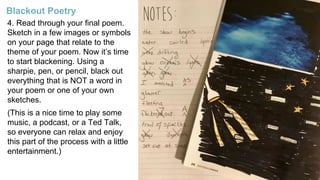 Blackout Poetry
4. Read through your final poem.
Sketch in a few images or symbols
on your page that relate to the
theme of your poem. Now it's time
to start blackening. Using a
sharpie, pen, or pencil, black out
everything that is NOT a word in
your poem or one of your own
sketches.
(This is a nice time to play some
music, a podcast, or a Ted Talk,
so everyone can relax and enjoy
this part of the process with a little
entertainment.)
NOTES:
the show begins
water
drifting
I wanted as
glamour
fleeting